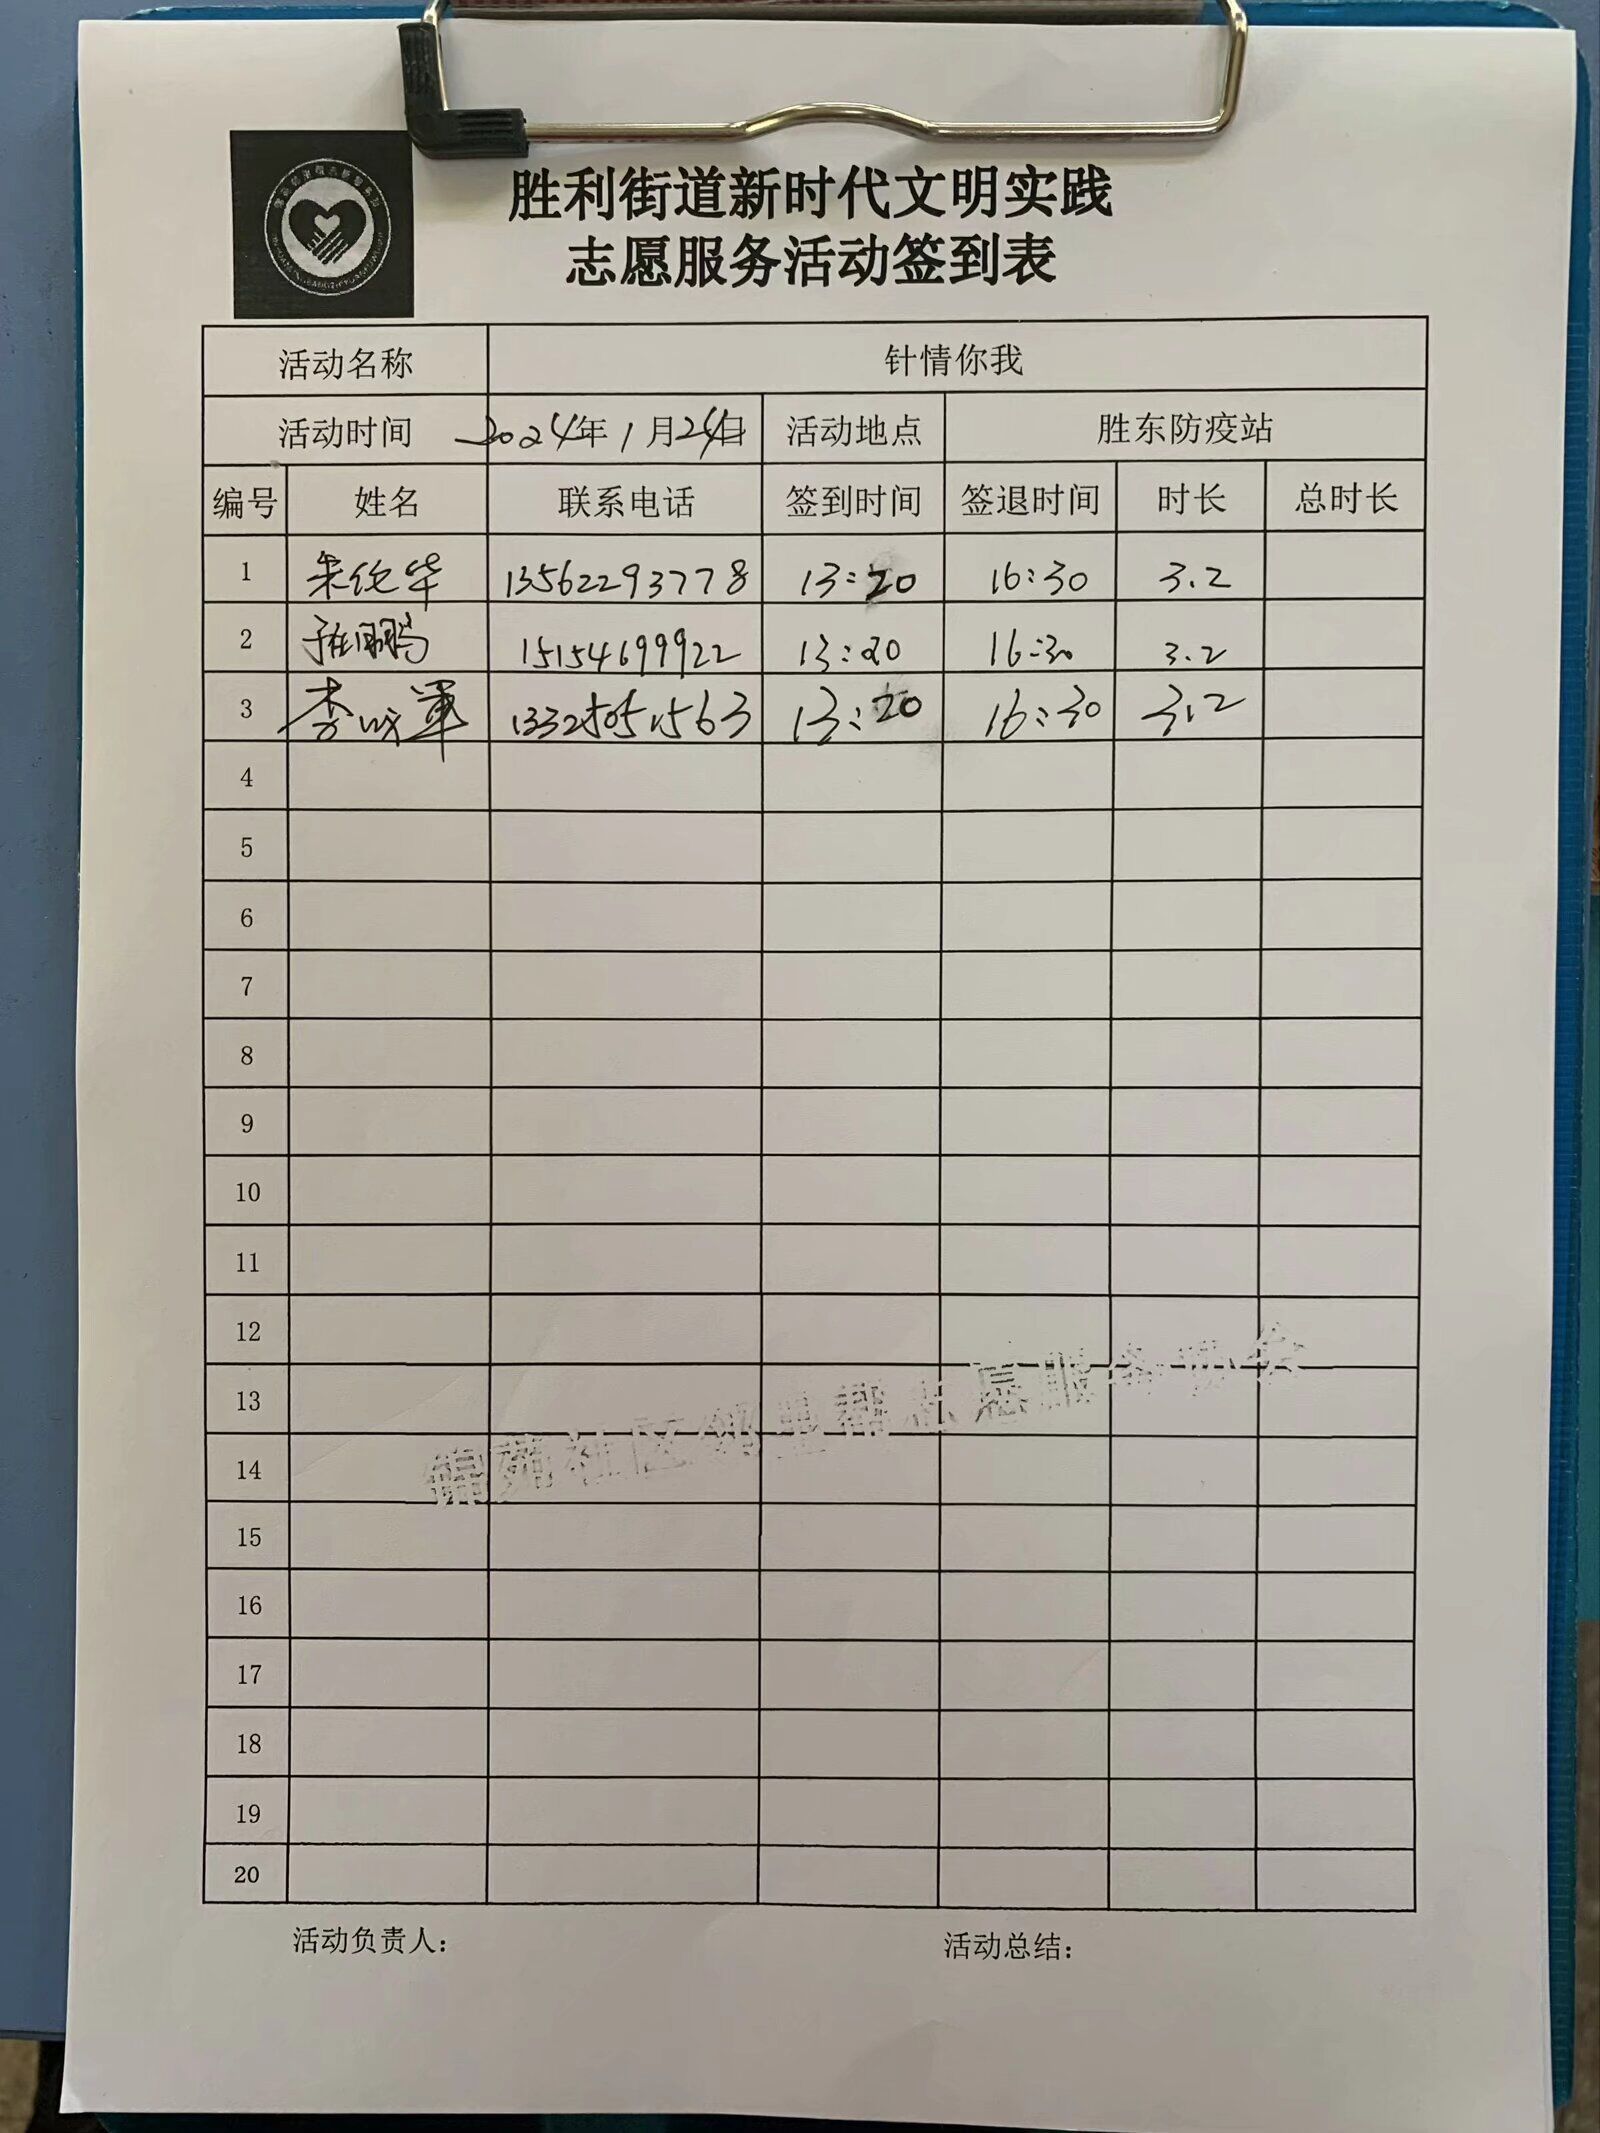 胜利街道新时代文明实践
志愿服务活动签到表
活动名称 针情你我
活动时间 2024年1月24日 活动地点 胜东防疫站
编号 姓名 联系电话 签到时间 签退时间 时长 总时长
1 华 13562293778 13:20 16:30 3.2
2 鹏 15154699922 13:20 16:30 3.2
3 李 軍 13325051563 13:20 16:30 3.2
4
5
6
7
8
9
10
11
12
13
14
15
16
17
18
19
20
活动负责人： 活动总结：